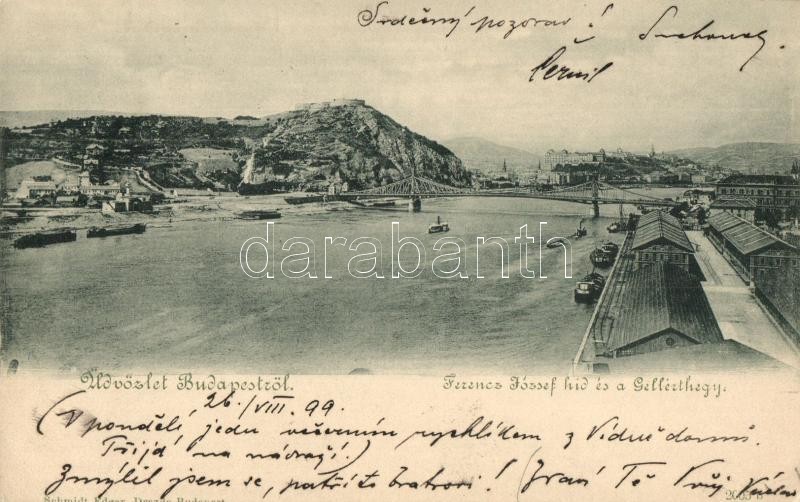 Srdečný pozdrav!
Černil
darabanth
Üdvözlet Budapestről.
Ferencz József hid és a Gellérthegy.
26/VIII. 99.
(V pondělí, jedu večerním rychlíkem z Vídně domů.
Přijď na nádraží!)
Zmýlil jsem se, patří to bratrovi! (Zdraví Tě Tvůj
Schmidt Edgar, Budapest